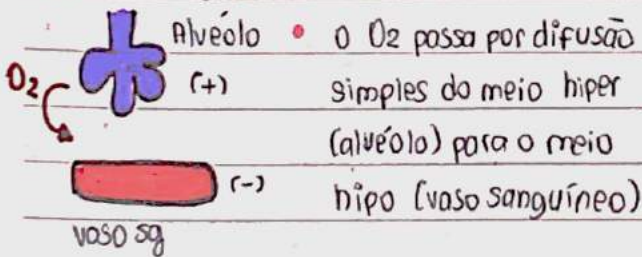 Alvéolo • O O2 passa por difusão
O2 (+) simples do meio hiper
(alvéolo) para o meio
(-) hipo (vaso sanguíneo)
vaso sg